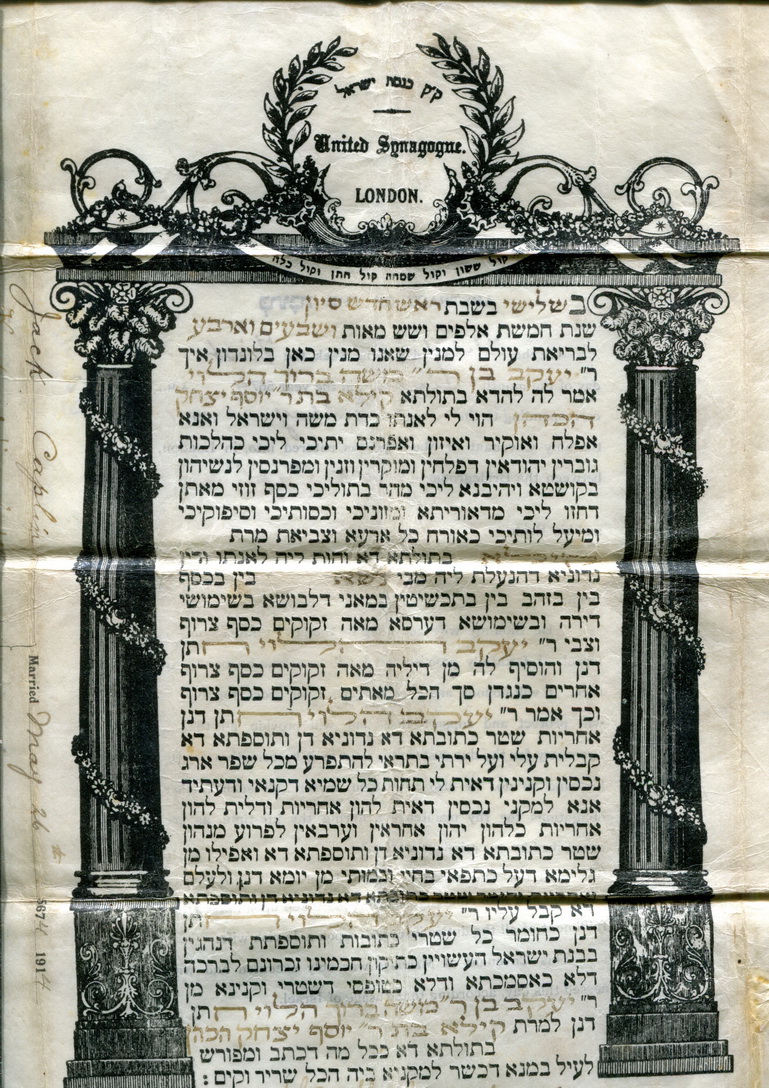 ק״ק כנסת ישראל
United Synagogue.
LONDON.
קול ששון וקול שמחה קול חתן וקול כלה
בשלישי בשבת ראש חדש סיון
שנת חמשת אלפים ושש מאות ושבעים וארבע
לבריאת עולם למנין שאנו מנין כאן בלונדון איך
ר״ יעקב בן ר״ משה ברוך הלוי
אמר לה להדא בתולתא קילא בת ר״ יוסף יצחק
הכהן הוי לי לאנתו כדת משה וישראל ואנא
אפלח ואוקיר ואיזון ואפרנס יתיכי ליכי כהלכות
גוברין יהודאין דפלחין ומוקרין וזנין ומפרנסין לנשיהון
בקושטא ויהיבנא ליכי מהר בתוליכי כסף זוזי מאתן
דחזו ליכי מדאוריתא ומזוניכי וכסותיכי וסיפוקיכי
ומיעל לותיכי כאורח כל ארעא וצביאת מרת
בתולתא דא והות ליה לאנתו ודין
נדוניא דהנעלת ליה מבי נשא בין בכסף
בין בזהב בין בתכשיטין במאני דלבושא בשימושי
דירה ובשימושא דערסא מאה זקוקים כסף צרוף
וצבי ר״ יעקב הלוי חתן
דנן והוסיף לה מן דיליה מאה זקוקים כסף צרוף
אחרים כנגדן סך הכל מאתים זקוקים כסף צרוף
וכך אמר ר״ יעקב הלוי חתן דנן
אחריות שטר כתובתא דא נדוניא דן ותוספתא דא
קבלית עלי ועל ירתי בתראי להתפרע מכל שפר ארג
נכסין וקנינין דאית לי תחות כל שמיא דקנאי ודעתיד
אנא למקני נכסין דאית להון אחריות ודלית להון
אחריות כלהון יהון אחראין וערבאין לפרוע מנהון
שטר כתובתא דא נדוניא דן ותוספתא דא ואפילו מן
גלימא דעל כתפאי בחיי ובמותי מן יומא דנן ולעלם
דא קבל עליו ר״ יעקב הלוי חתן
דנן כחומר כל שטרי כתובות ותוספתת דנהגין
בבנת ישראל העשויין כתיקון חכמינו זכרונם לברכה
דלא כאסמכתא ודלא כטופסי דשטרי וקנינא מן
ר״ יעקב בן ר״ משה ברוך הלוי חתן
דנן למרת קילא בת ר״ יוסף יצחק הכהן
בתולתא דא ככל מה דכתב ומפורש
לעיל במנא דכשר למקניא ביה הכל שריר וקים:
Jack Caplin
Married May 26th 5674 1914